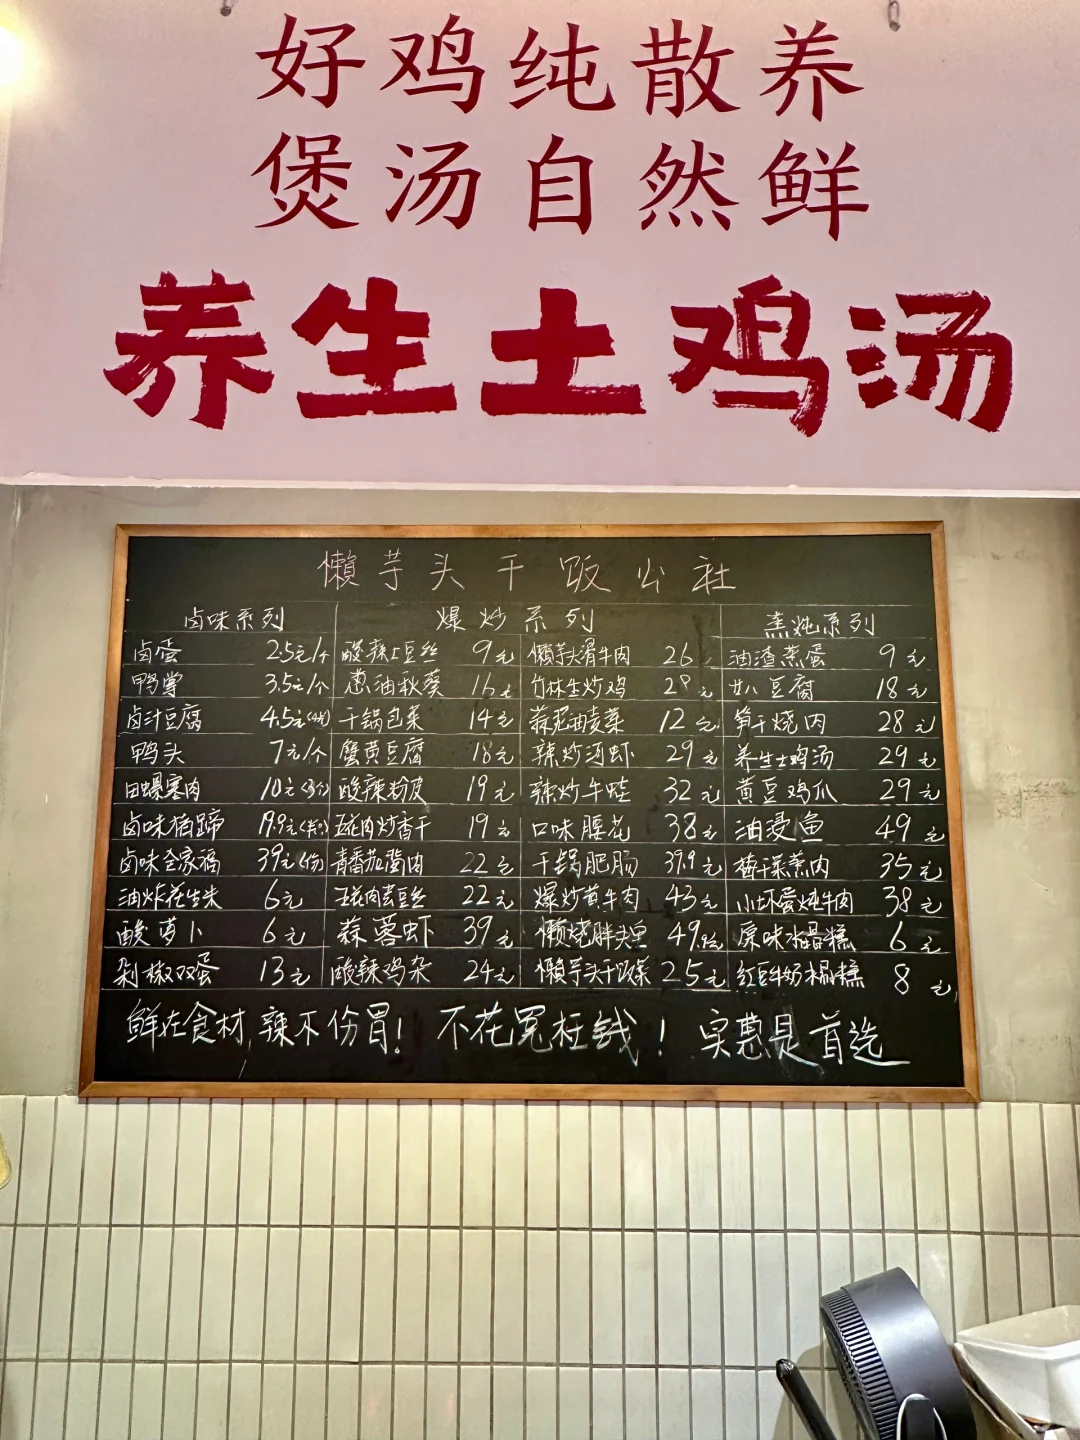 好鸡纯散养
煲汤自然鲜
养生土鸡汤
懒芋头干饭公社
卤味系列 爆炒系列 蒸炖系列
卤蛋 2.5元/个 酸辣土豆丝 9元 懒芋头滑牛肉 26 油渣蒸蛋 9元
鸭胗 3.5元/个 葱油秋葵 16元 竹林生炒鸡 28元 豆腐 18元
卤汁豆腐 4.5元 干锅包菜 14元 蒜泥油麦菜 12元 笋干烧肉 28元
鸭头 7元/个 蟹黄豆腐 18元 辣炒河虾 29元 养生土鸡汤 29元
田螺塞肉 10元 酸辣粉皮 19元 辣炒牛蛙 32元 黄豆鸡爪 29元
卤味猪蹄 19.9元 五花肉炒香干 19元 口味腰花 38元 油浸鱼 49元
卤味全家福 39元(份) 青番茄酱肉 22元 干锅肥肠 39.9元 梅干菜蒸肉 35元
油炸花生米 6元 五花肉土豆丝 22元 爆炒黄牛肉 43元 小坏蛋炖牛肉 38元
酸萝卜 6元 蒜蓉虾 39元 懒烧胖头鱼 49.9元 原味水晶糕 6元
剁椒双蛋 13元 酸辣鸡杂 24元 懒芋头干饭菜 25元 红豆牛奶木桶糕 8元
鲜在食材,辣不伤胃! 不花冤枉钱! 实惠是首选